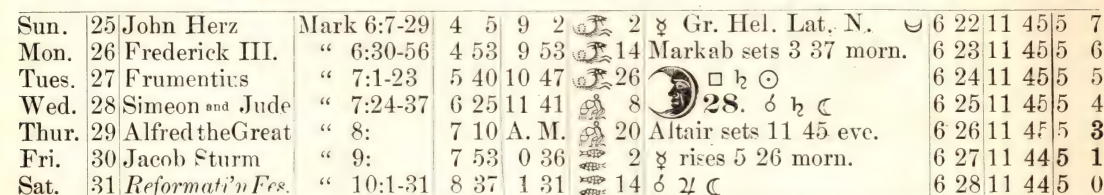 Sun. 25 John Herz Mark 6:7-29 4 5 9 2 2 ☿ Gr. Hel. Lat. N. 6 22 11 45 5 7
Mon. 26 Frederick III. “ 6:30-56 4 53 9 53 14 Markab sets 3 37 morn. 6 23 11 45 5 6
Tues. 27 Frumentius “ 7:1-23 5 40 10 47 26 □ ♄ ☉ 6 24 11 45 5 5
Wed. 28 Simeon and Jude “ 7:24-37 6 25 11 41 8 28. ☌ ♄ ☾ 6 25 11 45 5 4
Thur. 29 Alfred the Great “ 8: 7 10 A. M. 20 Altair sets 11 45 eve. 6 26 11 45 5 3
Fri. 30 Jacob Sturm “ 9: 7 53 0 36 2 ☿ rises 5 26 morn. 6 27 11 44 5 1
Sat. 31 Reformati'n Fes. “ 10:1-31 8 37 1 31 14 ☌ ♃ ☾ 6 28 11 44 5 0